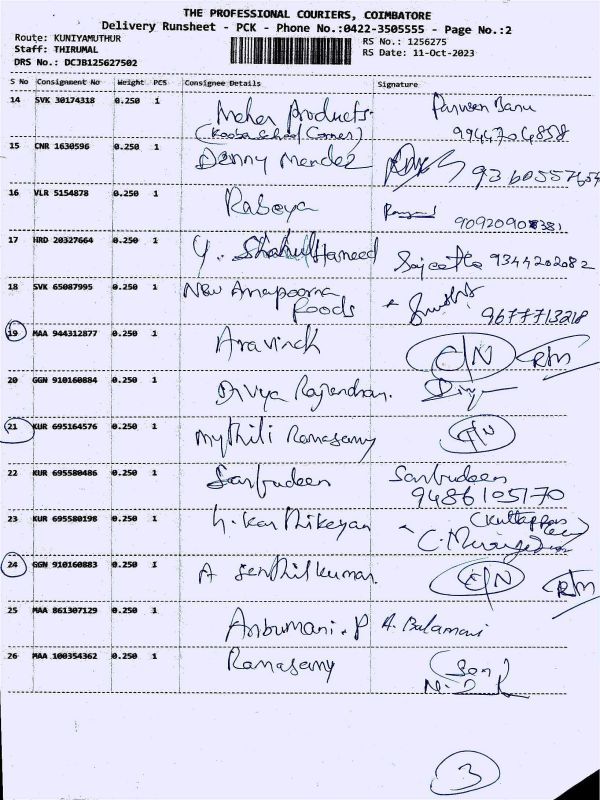 THE PROFESSIONAL COURIERS, COIMBATORE
Delivery Runsheet - PCK - Phone No.:0422-3505555 - Page No.:2
Route: KUNIYAMUTHUR RS No.: 1256275
Staff: THIRUMAL RS Date: 11-Oct-2023
DRS No.: DCJB125627502
S No Consignment No Weight PCS Consignee Details Signature
14 SVK 30174318 0.250 1 Meher Products Parveen Banu
(Kooba School Corner) 9944704858
15 CNR 1630596 0.250 1 Denny Mendez
16 VLR 5154878 0.250 1 Rabeya
17 HRD 20327664 0.250 1 Y. Shahul Hameed Sajeetha 9344202082
18 SVK 65087995 0.250 1 New Annapoorna
Foods 9677713218
19 MAA 944312877 0.250 1 Aravinth C/N RTN
20 GGN 910160884 0.250 1 Divya Rajendran. Divya
21 KUR 695164576 0.250 1 Mythili Ramasamy C/N
22 KUR 695580486 0.250 1 Sarbudeen Sarbudeen
9486105170
23 KUR 695580198 0.250 1 h. Karthikeyan
24 GGN 910160883 0.250 1 A Senthilkumar. C/N RTN
25 MAA 861307129 0.250 1 Anbumani. P A. Balamani
26 MAA 100354362 0.250 1 Ramasamy (Son)
3